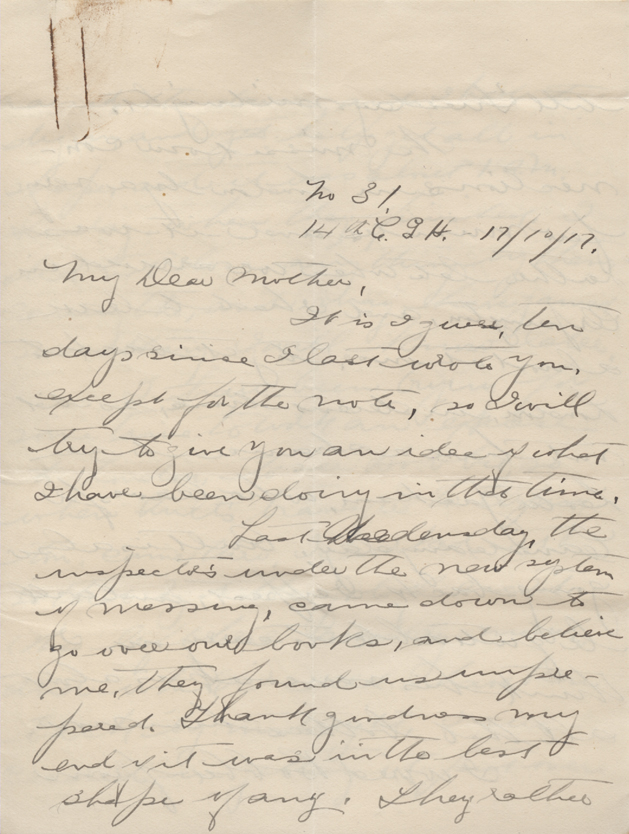 No 31
14th C. G H. 17/10/17.
My Dear Mother,
It is I guess, ten
days since I last wrote you,
except for the note, so I will
try to give you an idea of what
I have been doing in that time.
Last Wedensday, the
inspectors under the new system
of messing, came down to
go over our books, and believe
me, they found us unpre-
pared. Thank goodness my
end of it was in the best
shape of any. They rather